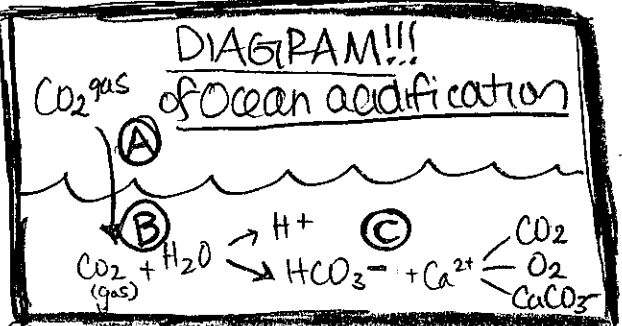 DIAGRAM!!!
of Ocean acidification
CO2 gas
A
B
C
CO2 + H2O
(gas)
H+
HCO3- + Ca2+
CO2
O2
CaCO3-